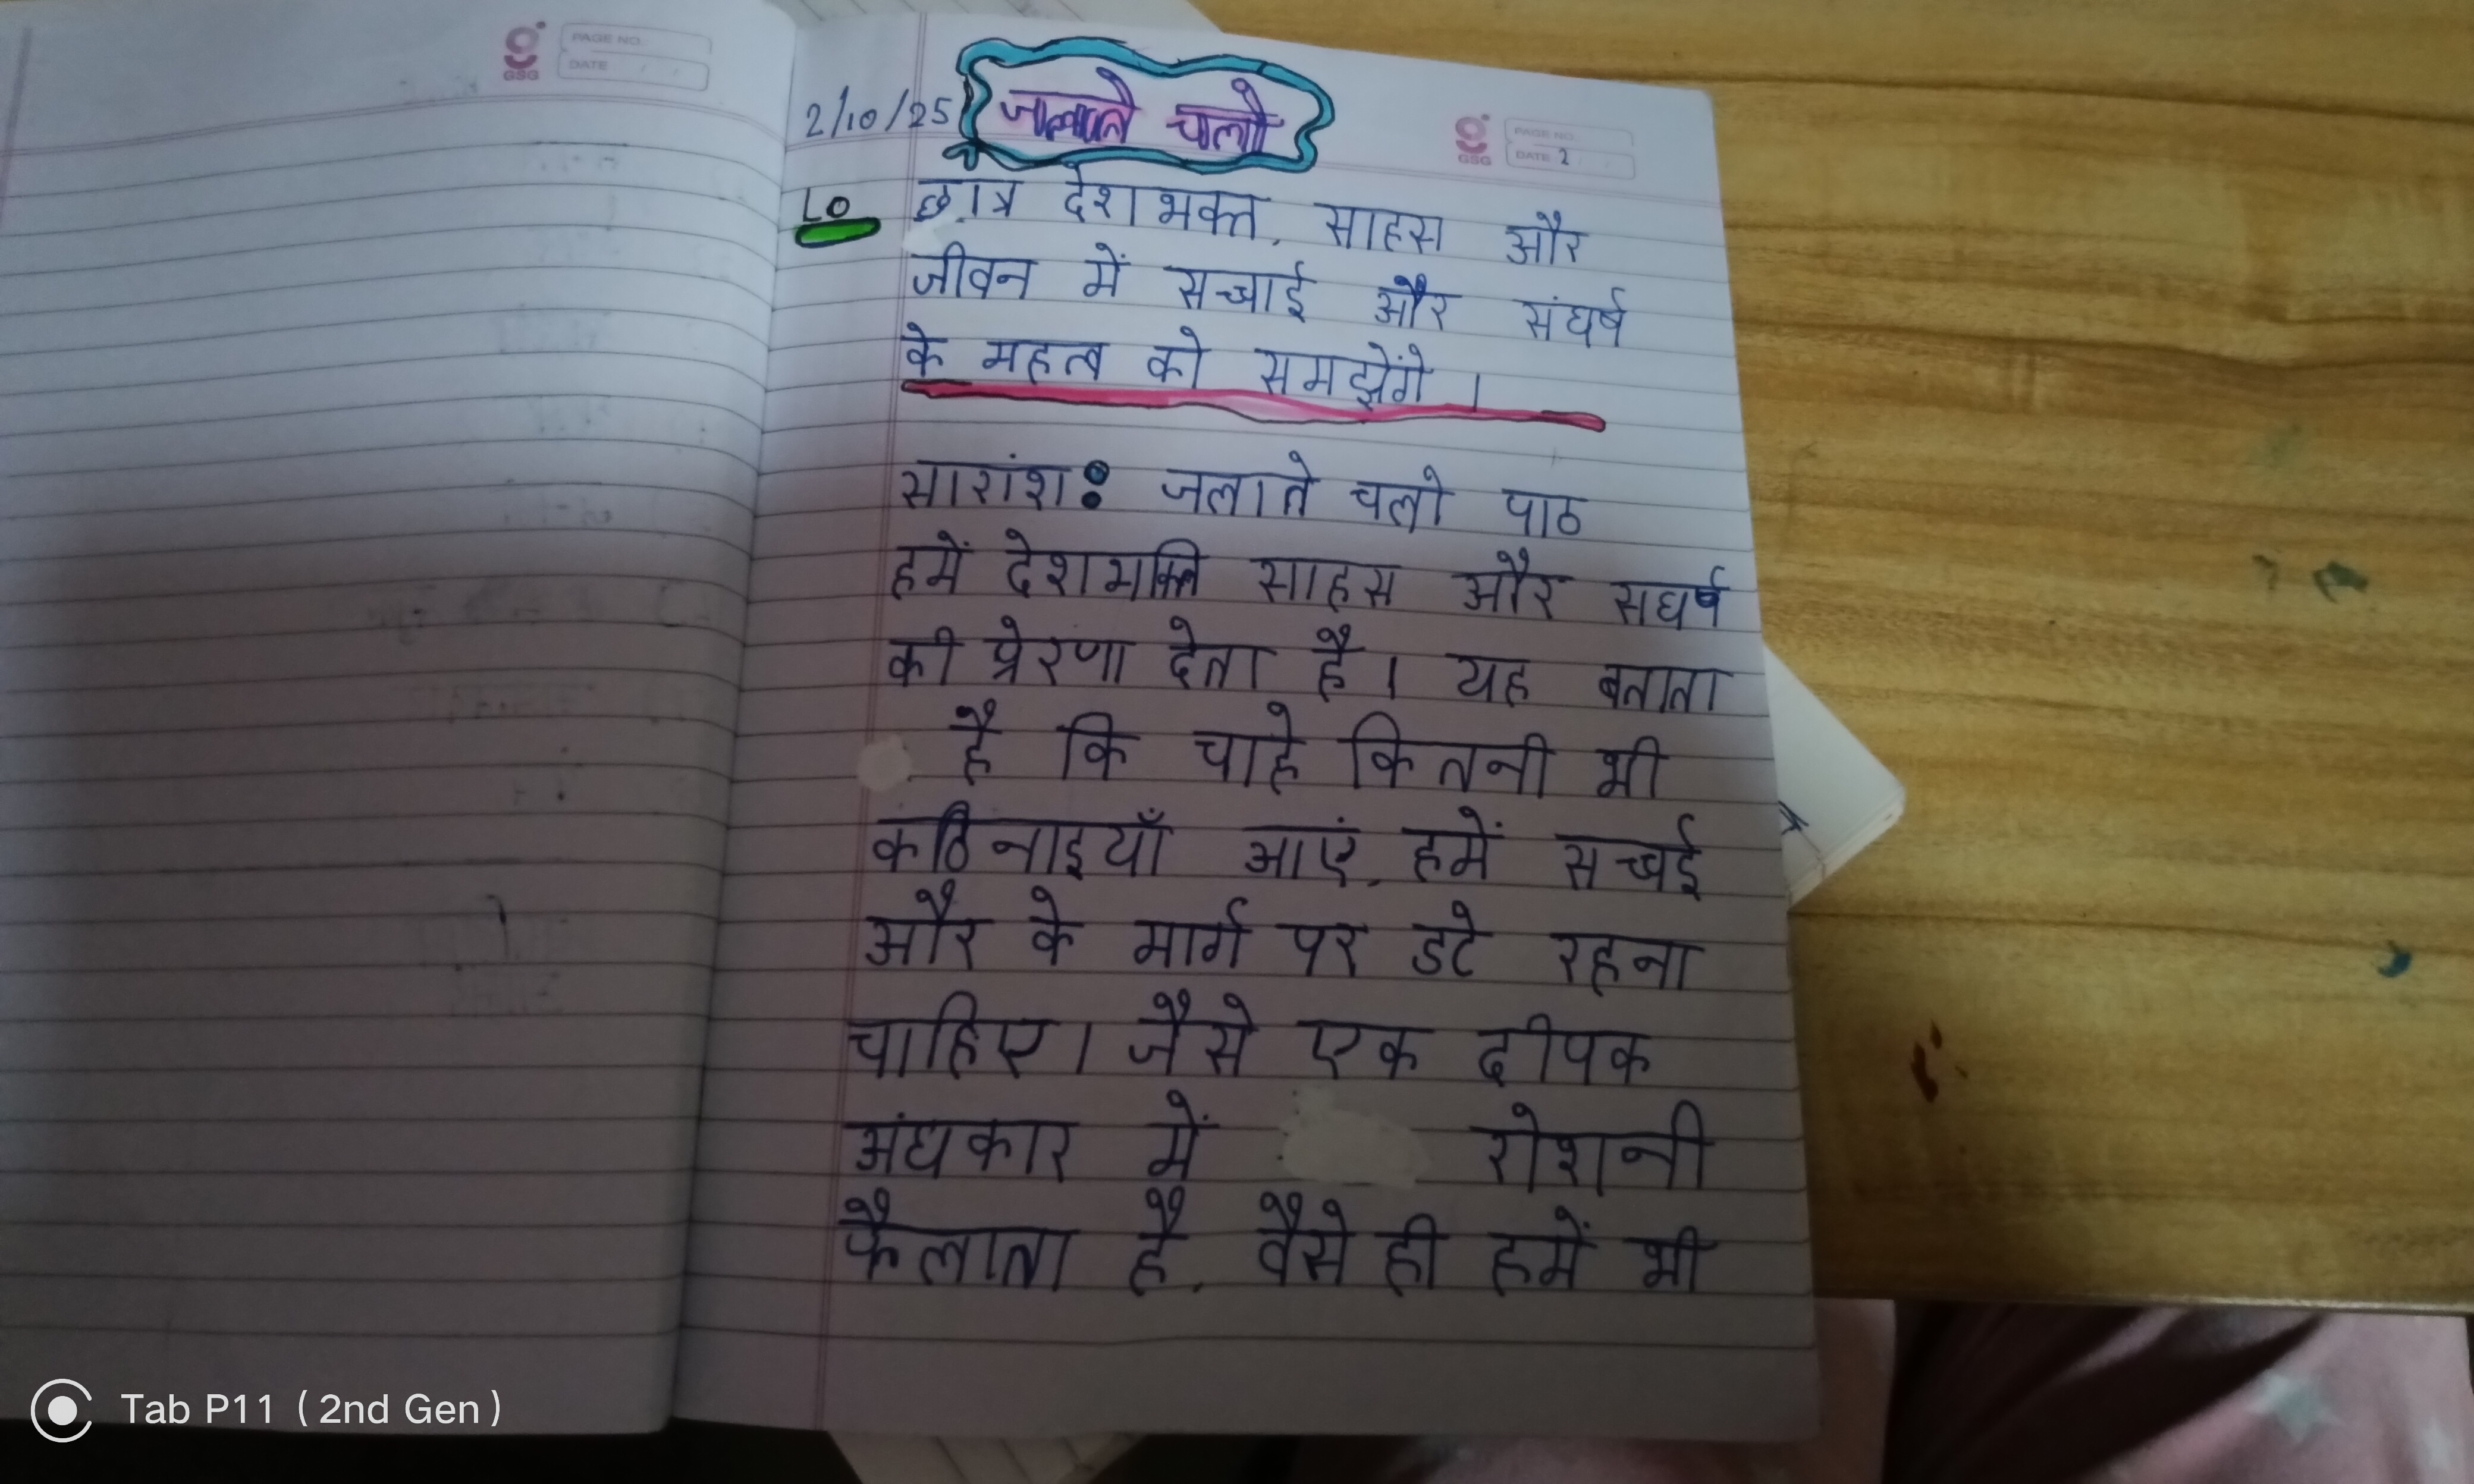 PAGE NO.
DATE
GSG
2/10/25 जलाते चलो
PAGE NO.
DATE 2
GSG
LO छात्र देशभक्त, साहस और
जीवन में सच्चाई और संघर्ष
के महत्व को समझेंगे ।
सारांश: जलाते चलो पाठ
हमें देशभक्ति साहस और सघर्ष
की प्रेरणा देता है । यह बताता
है कि चाहे कितनी भी
कठिनाइयाँ आएं, हमें सच्चई
और के मार्ग पर डटे रहना
चाहिए । जैसे एक दीपक
अंधकार में रोशनी
फैलाता है, वैसे ही हमें भी
Tab P11 (2nd Gen)